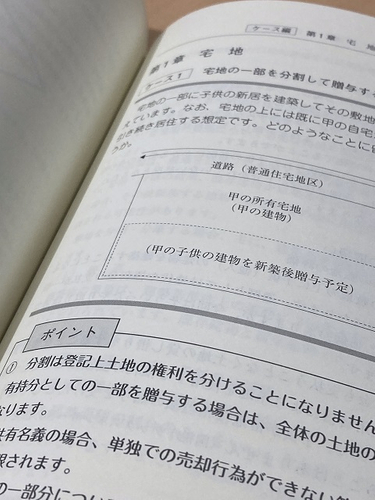 ケース編 第1章 宅 地
第1章 宅 地
ケース1 宅地の一部を分割して贈与す
宅地の一部に子供の新居を建築してその敷地
えています。なお、宅地の上には既に甲の自宅
き続き居住する想定です。どのようなことに
うか。
道路（普通住宅地区）
甲の所有宅地
（甲の建物）
（甲の子供の建物を新築後贈与予定）
ポイント
① 分割は登記上土地の権利を分けることになりません
有持分としての一部を贈与する場合は、全体の土地の
なります。
共有名義の場合、単独での売却行為ができない
限されます。
の一部分につい